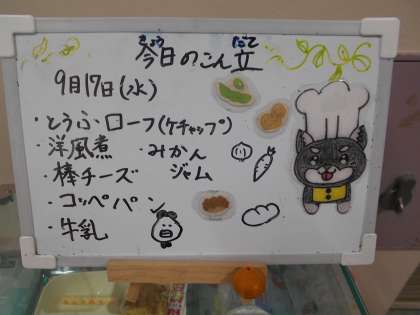 きょう だて
今日のこん立
9月17日(水)
・とうふローフ(ケチャップ)
・洋風煮 ・みかん
・棒チーズ ジャム
・コッペパン
・牛乳